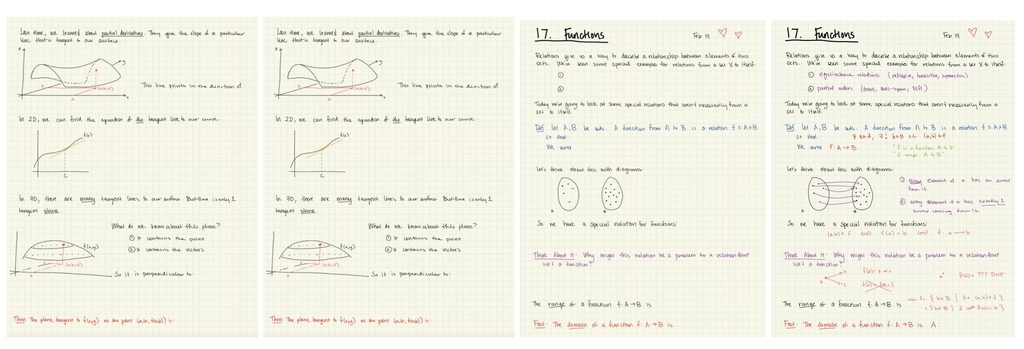 Last time, we learned about partial derivatives. They give the slope of a particular
line that is tangent to our surface.
This line points in the direction of
In 2D, we can find the equation of the tangent line to our curve.
f(x)
c
In 3D, there are many tangent lines to our surface. But there is only 1
tangent plane.
What do we know about this plane?
① It contains the point
② It contains the vectors
f(x,y)
So it is perpendicular to:
Thm The plane tangent to f(x,y) at the point (a,b,f(a,b)) is:
Last time, we learned about partial derivatives. They give the slope of a particular
line that is tangent to our surface.
This line points in the direction of
In 2D, we can find the equation of the tangent line to our curve.
f(x)
c
In 3D, there are many tangent lines to our surface. But there is only 1
tangent plane.
What do we know about this plane?
① It contains the point
② It contains the vectors
f(x,y)
So it is perpendicular to:
Thm The plane tangent to f(x,y) at the point (a,b,f(a,b)) is:
17. Functions
Feb 14
Relations give us a way to describe a relationship between elements of two
sets. We've seen some special examples for relations from a set X to itself:
①
②
Today we're going to look at some special relations that aren't necessarily from a
set to itself.
Def Let A, B be sets. A function from A to B is a relation f ⊆ A×B
so that:
We write
Let's think about this with diagrams:
A
B
So we have a special notation for functions:
Think About It: Why might this notation be a problem for a relation that
isn't a function?
The range of a function f: A → B is
Fact: The domain of a function f: A → B is
17. Functions
Feb 14
Relations give us a way to describe a relationship between elements of two
sets. We've seen some special examples for relations from a set X to itself:
① equivalence relations (reflexive, transitive, symmetric)
② partial orders
Today we're going to look at some special relations that aren't necessarily from a
set to itself.
Def Let A, B be sets. A function from A to B is a relation f ⊆ A×B
so that:
We write f: A → B.
Let's think about this with diagrams:
A
B
① every element of A has an arrow
from it
② every element of A has exactly 1
arrow coming from it.
So we have a special notation for functions:
(a,b) ∈ f
f(a) = b
Think About It: Why might this notation be a problem for a relation that
isn't a function?
The range of a function f: A → B is
Fact: The domain of a function f: A → B is A.